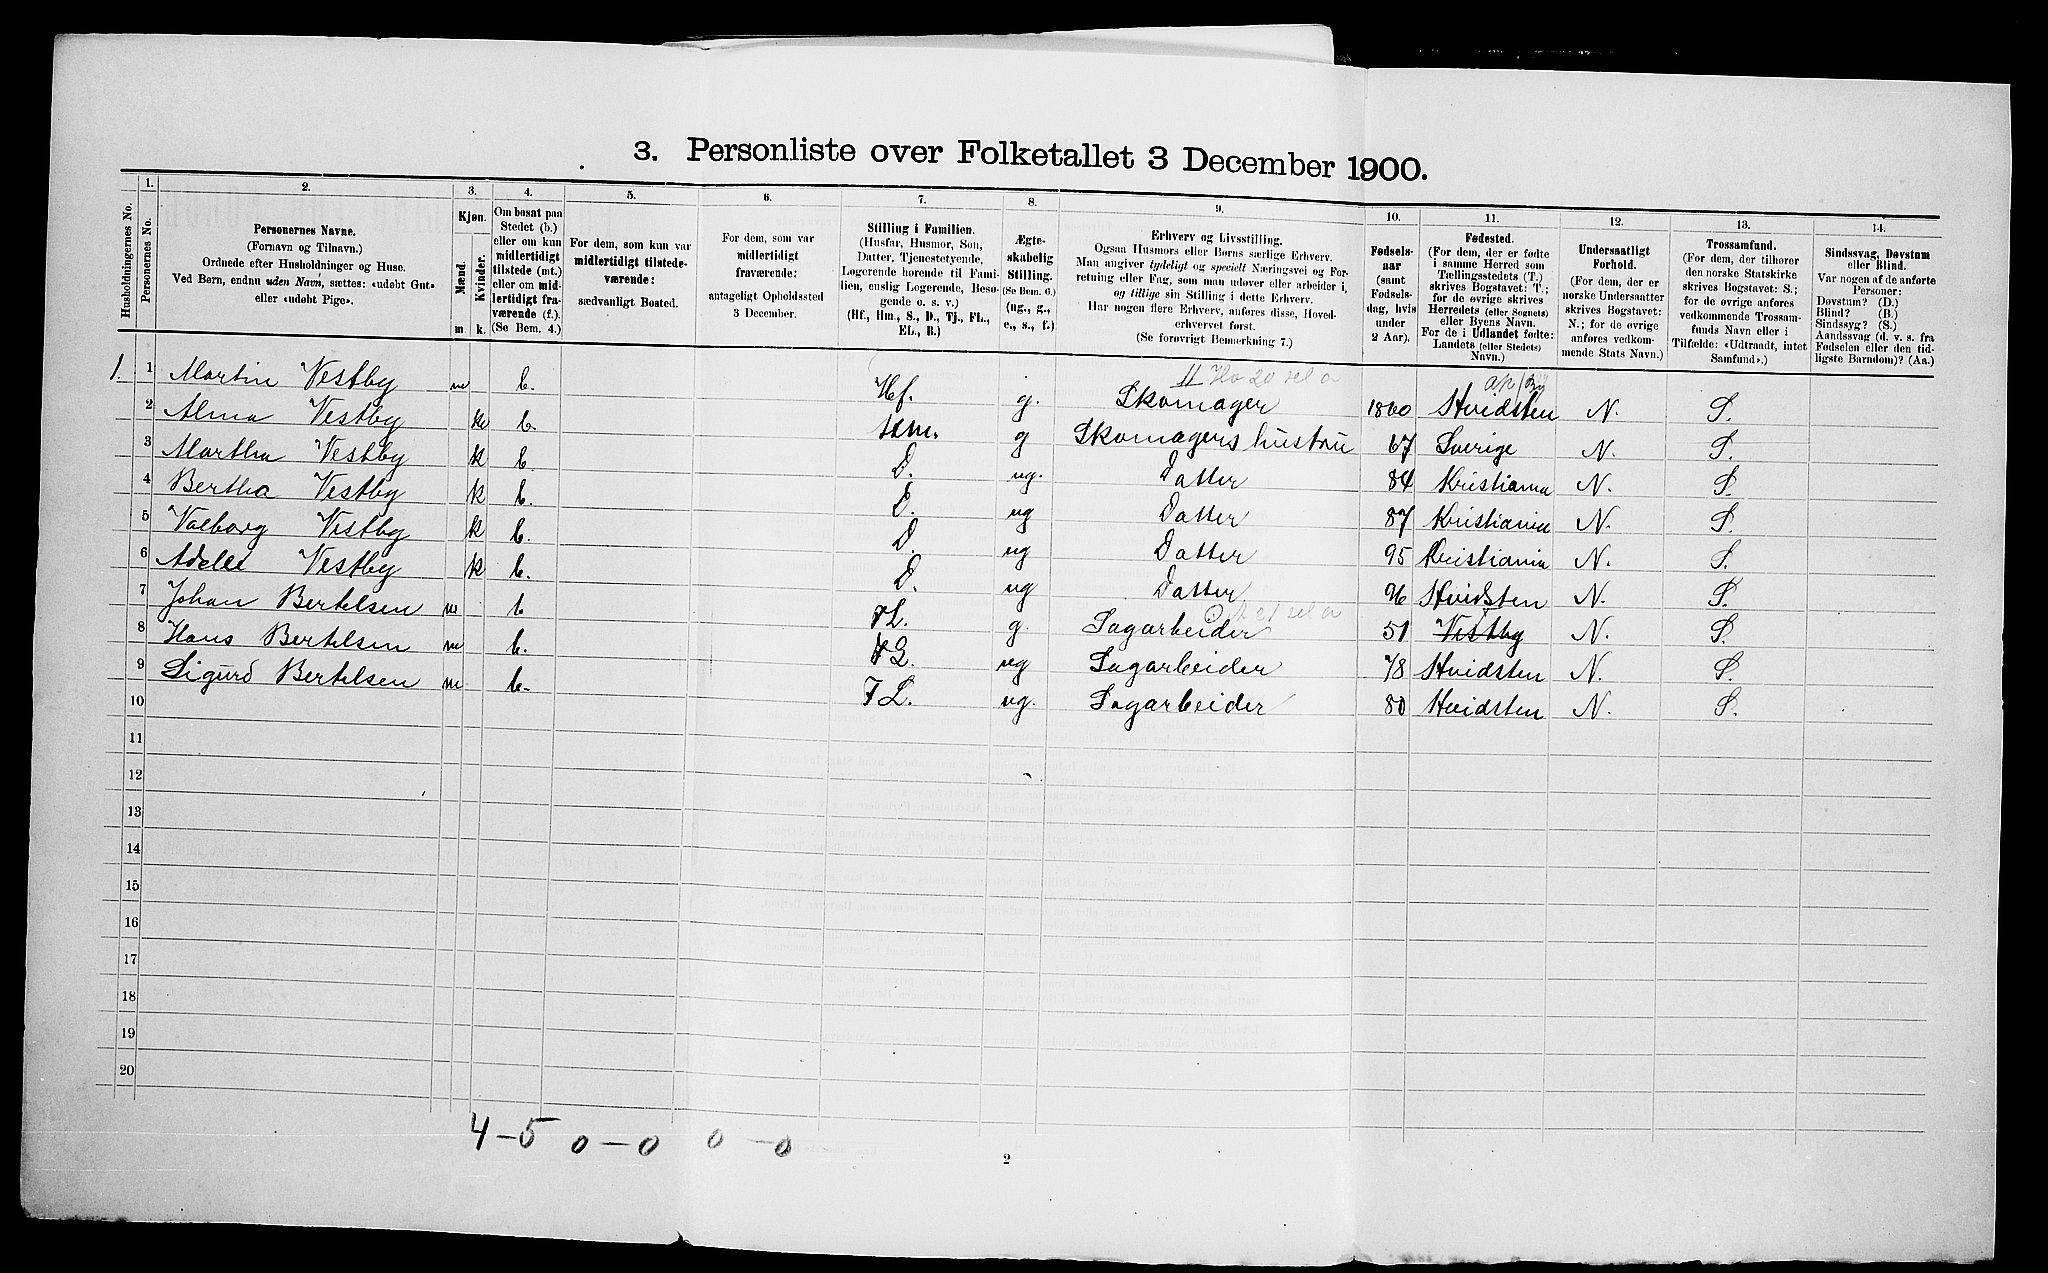 3. Personliste over Folketallet 3 December 1900.
Husholdningernes No.
1. Personernes No.
2. Personernes Navne.
(Fornavn og Tilnavn.)
Ordnede efter Husholdninger og Huse.
Ved Børn, endnu uden Navn, sættes: «udøbt Gut»
eller «udøbt Pige».
3. Kjøn.
Mænd. m.
Kvinder. k.
4. Om bosat paa
Stedet (b.)
eller om kun
midlertidigt
tilstede (mt.)
eller om mid-
lertidigt fra-
værende (f.).
(Se Bem. 4.)
5. For dem, som kun var
midlertidigt tilstede-
værende:
sædvanligt Bosted.
6. For dem, som var
midlertidigt
fraværende:
antageligt Opholdssted
3 December.
7. Stilling i Familien.
(Husfar, Husmor, Søn,
Datter, Tjenestetyende,
Logerende hørende til Fami-
lien, enslig Logerende, Besø-
gende o. s. v.)
(Hf., Hm., S., D., Tj., FL.,
EL., B.)
8. Ægte-
skabelig
Stilling.
(Se Bem. 6.)
(ug., g.,
e., s., f.)
9. Erhverv og Livsstilling.
Ogsaa Husmors eller Børns særlige Erhverv.
Man angiver tydeligt og specielt Næringsvei og For-
retning eller Fag, som man udøver eller arbeider i,
og tillige sin Stilling i dette Erhverv.
Har nogen flere Erhverv, anføres disse, Hoved-
erhvervet først.
(Se forøvrigt Bemerkning 7.)
10. Fødsels-
aar
(samt
Fødsels-
dag, hvis
under
2 Aar).
11. Fødested.
(For dem, der er fødte
i samme Herred som
Tællingsstedets (T.)
skrives Bogstavet: T.;
for de øvrige skrives
Herredets (eller Sognets)
eller Byens Navn.
For de i Udlandet fødte:
Landets (eller Stedets)
Navn.)
12. Undersaatligt
Forhold.
(For dem, der er
norske Undersaatter
skrives Bogstavet:
N.; for de øvrige
anføres vedkom-
mende Stats Navn.)
13. Trossamfund.
(For dem, der tilhører
den norske Statskirke
skrives Bogstavet: S.;
for de øvrige anføres
vedkommende Trossam-
funds Navn eller i
Tilfælde: «Udtraadt, intet
Samfund».)
14. Sindssvag, Døvstum
eller Blind.
Var nogen af de anførte
Personer:
Døvstum? (D.)
Blind? (B.)
Sindssyg? (S.)
Aandssvag (d. v. s. fra
Fødselen eller den tid-
ligste Barndom)? (Aa.)
1. 1 Martin Vestby m b. Hf. g. Skomager 1860 Hvidsten N. S.
2 Alma Vestby k b. Hm. g Skomagers hustru 67 Sverige N. S.
3 Martha Vestby k b. D. ug. Datter 84 Kristiania N. S.
4 Bertha Vestby k b. D. ug Datter 87 Kristiania N. S.
5 Valborg Vestby k b. D. ug Datter 95 Kristiania N. S.
6 Adele Vestby k b. D. ug Datter 96 Hvidsten N. S.
7 Johan Bertelsen m b FL. g. Sagarbeider 51 Vestby N. S.
8 Hans Bertelsen m b. FL. ug Sagarbeider 78 Hvidsten N. S.
9 Sigurd Bertelsen m b. FL. ug. Sagarbeider 80 Hvidsten N. S.
10
11
12
13
14
15
16
17
18
19
20
4-5 0-0 0-0
2